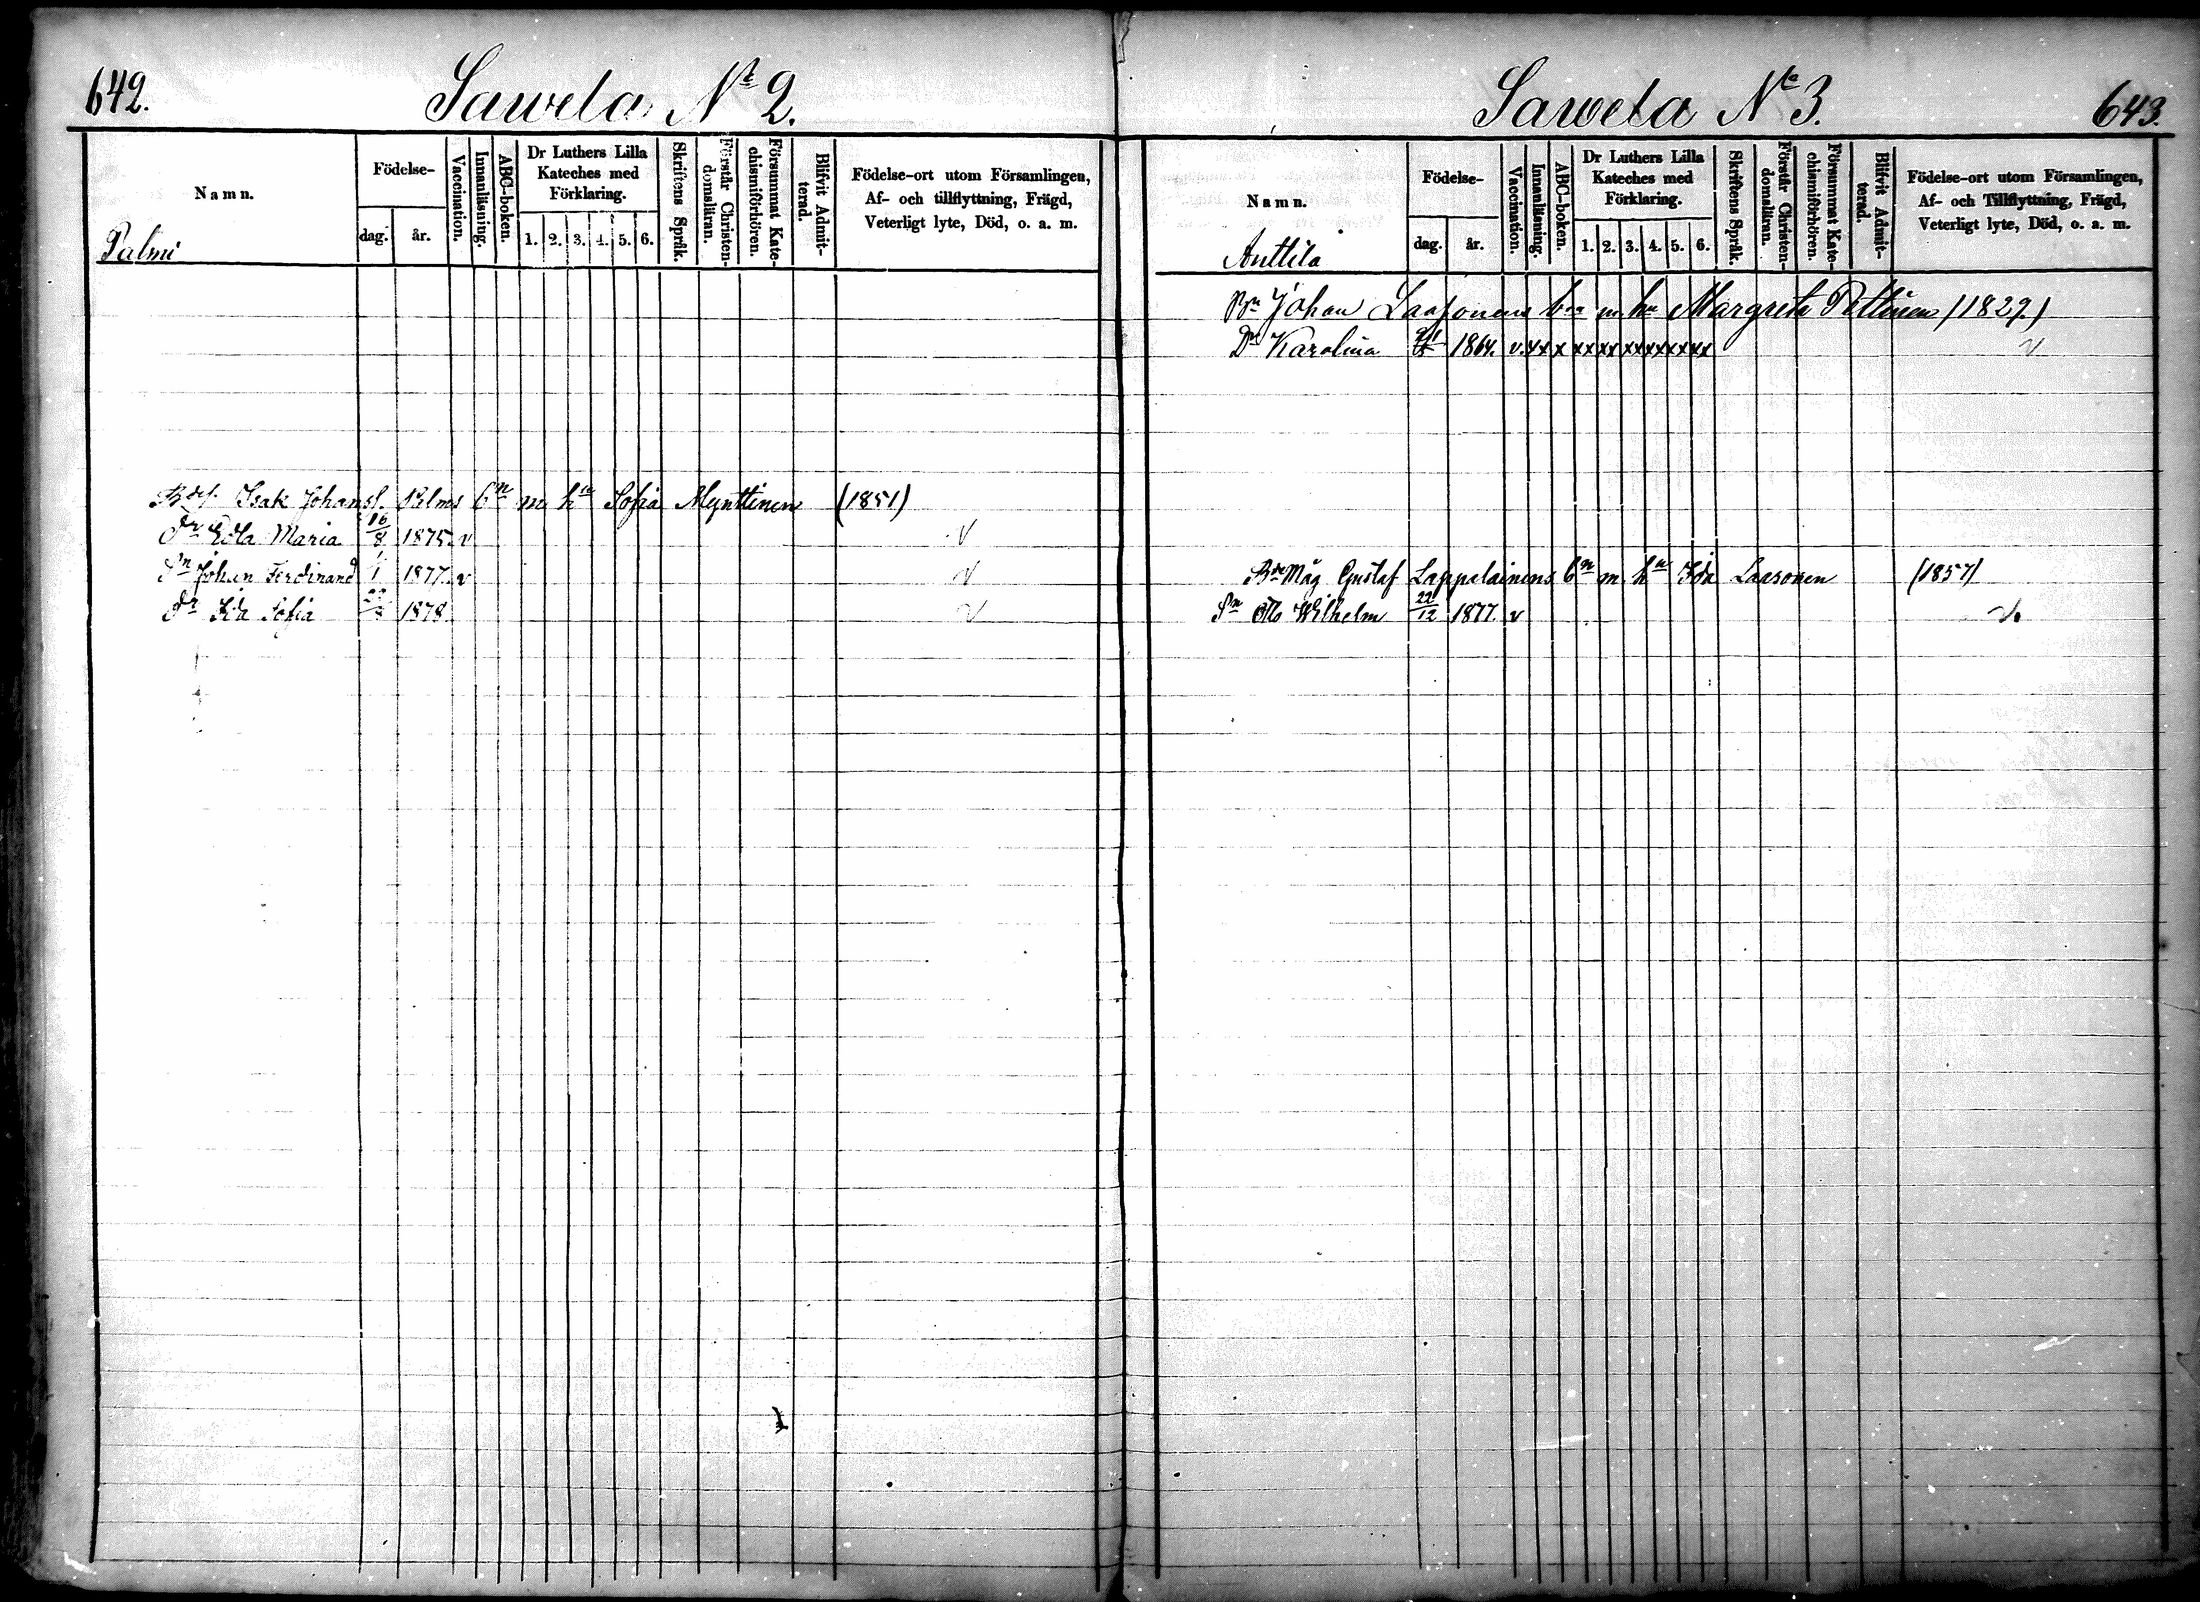 642.
Sawela N:o 2.
Namn.
Palmi
Födelse-
dag.
år.
Vaccination.
Innanläsning.
ABC-boken.
Dr Luthers Lilla
Kateches med
Förklaring.
1. 2. 3. 4. 5. 6.
Skriftens Språk.
Förstår Christen-
domsläran.
Försummat Kate-
chismiförhören.
Blifvit Admit-
terad.
Födelse-ort utom Församlingen,
Af- och tillflyttning, Frägd,
Veterligt lyte, Död, o. a. m.
Isak Johansf. Palms bn m hu Sofia Mynttinen (1851)
Dr Edla Maria 16/8 1875. v v
Sn Johan Ferdinand 1877. v v
Dr Ida Sofia 1878 v
Sawela N:o 3.
643.
Namn.
Anttila
Födelse-
dag.
år.
Vaccination.
Innanläsning.
ABC-boken.
Dr Luthers Lilla
Kateches med
Förklaring.
1. 2. 3. 4. 5. 6.
Skriftens Språk.
Förstår Christen-
domsläran.
Försummat Kate-
chismiförhören.
Blifvit Admit-
terad.
Födelse-ort utom Församlingen,
Af- och Tillflyttning, Frägd,
Veterligt lyte, Död, o. a. m.
Bn Johan Laasonens bn m hu Margreta Pettinen (1829)
Dr Karolina 1864. v. xx x xx xx xx xx xx xx v
Måg Gustaf Lappalainens bn m hu Ida Laasonen (1857)
Sn Otto Wilhelm 22/12 1877. v v